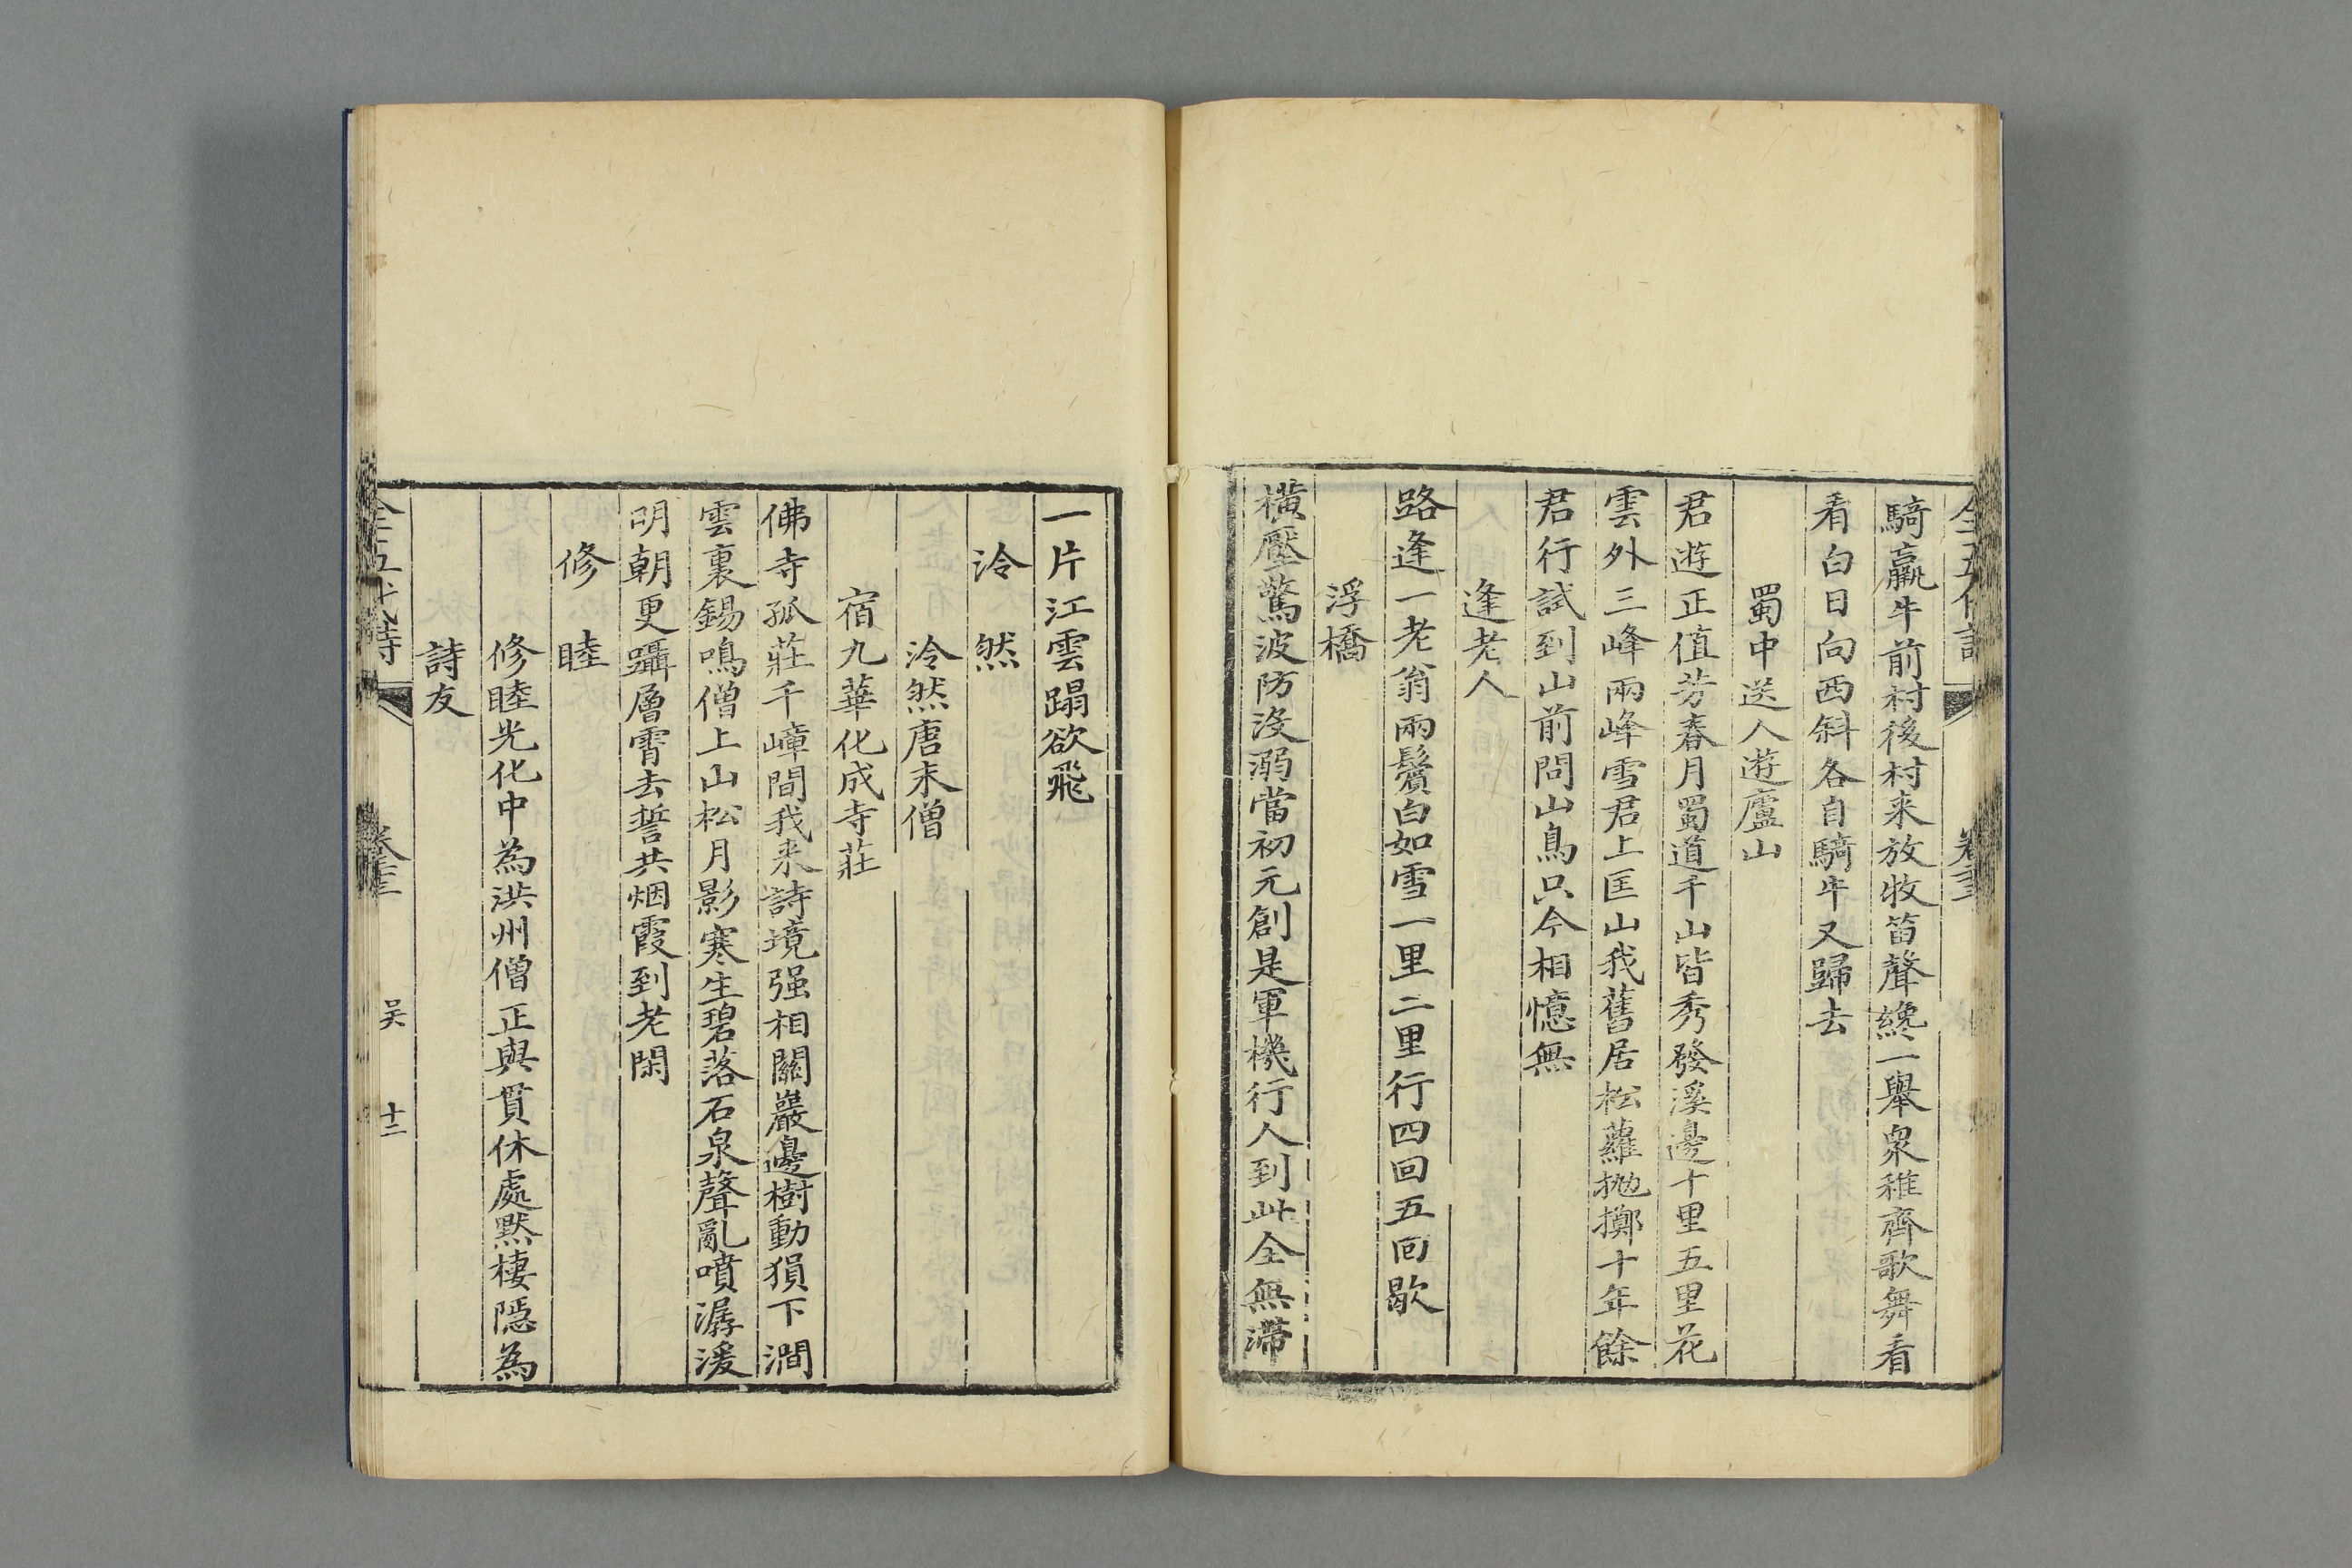 騎羸牛前村後村来放牧笛聲纔一舉衆稚齊歌舞看
看白日向西斜各自騎牛又歸去
蜀中送人遊廬山
君遊正值芳春月蜀道千山皆秀發溪邊十里五里花
雲外三峰兩峰雪君上匡山我舊居松蘿抛擲十年餘
君行試到山前問山鳥只今相憶無
逢老人
路逢一老翁兩鬢白如雪一里二里行四回五回歇
浮橋
橫壓驚波防沒溺當初元創是軍機行人到此全無滯
一片江雲蹋欲飛
泠然
泠然唐末僧
宿九華化成寺莊
佛寺孤莊千嶂間我来詩境强相關巖邊樹動猨下澗
雲裏錫鳴僧上山松月影寒生碧落石泉聲亂噴潺湲
明朝更躡層霄去誓共烟霞到老閑
修睦
修睦光化中為洪州僧正與貫休處默棲隱為
詩友
全五代詩
吴
十二